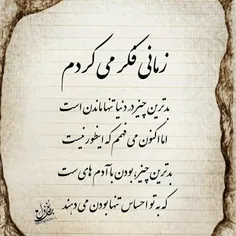 زمانی فکر می کردم
بدترین چیز در دنیا تنها ماندن است
اما اکنون می فهمم که اینطور نیست
بدترین چیز، بودن با آدم های ست
که به تو احساس تنها بودن می دهند